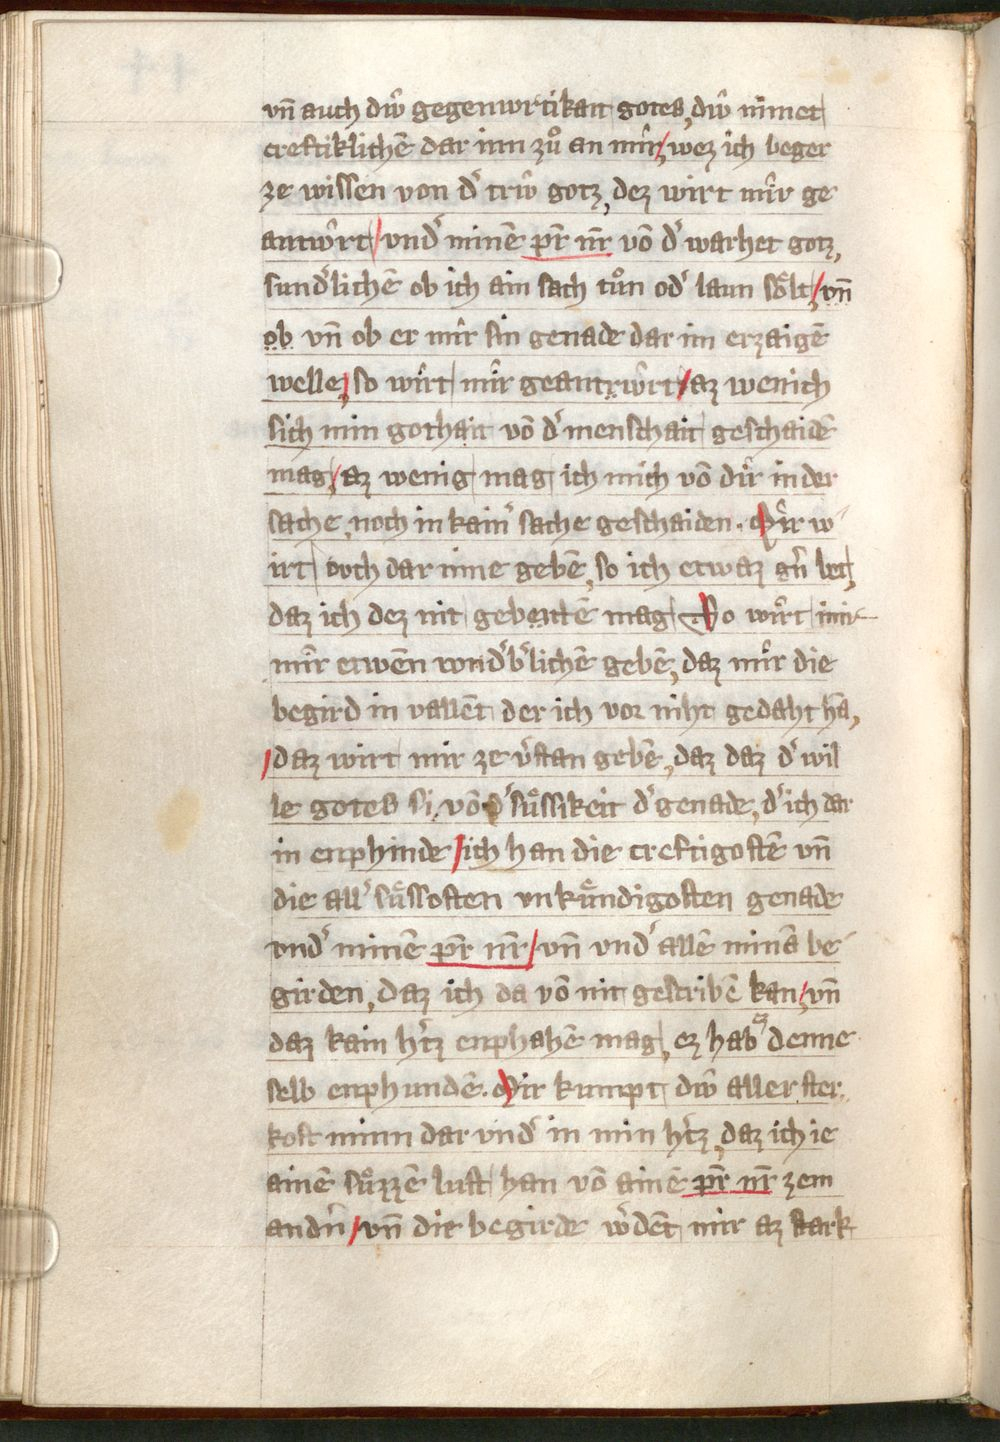 vn̄ auch diw̄ gegenwrtikait gotes, diw̄ nimet
creftiklichē dar inn zuͦ an mir, wez ich beger
ze wissen von dˀ triw̄ gotz, dez wirt mir ge
antwrt / vndˀ minē pr̄ nr̄ vō dˀ warhet gotz,
sundˀlichē ob ich ain sach tuͦn odˀ laun soͤlt, / vn̄
ob vn̄ ob er mir sin genade dar inn erzaigē
welle, so wirt mir geantwrt / az wenich
sich min gothait vō dˀ menschait geschaidē
mag, / az wenig mag ich mich vō dir in der
sache, noch in kainˀ sache geschaiden. Mir w
irt och dar inne gebē, so ich etwaz gn̄ bet,
daz ich dez nit gebettē mag So wirt mir
mir etwen wondˀbˀlichē gebē, daz mir die
begird in vallent der ich vor niht gedaht hā,
/ daz wirt mir ze vˀstan gebē, daz daz dˀ wil
le gotes si, vō dˀ suͤssikeit dˀ genade, dˀ ich dar
in enphinde / ich han die creftigostē vn̄
die allˀ suͤssosten vnkuͤndigosten genade
vndˀ minē pr̄ nr̄ / vn̄ vndˀ allē minē be
girden, daz ich da vō nit gescribē kan, / vn̄
daz kain hˀtz enphahē mag, ez hab ez denne
selb enphundē. Mir kumpt diw̄ aller ster
kost minn dar vndˀ in min hˀtz, daz ich ie
ainē suͤzzē lust han vō ainē pr̄ nr̄ zem
andn̄ / vn̄ die begirde wˀdēt mir az stark